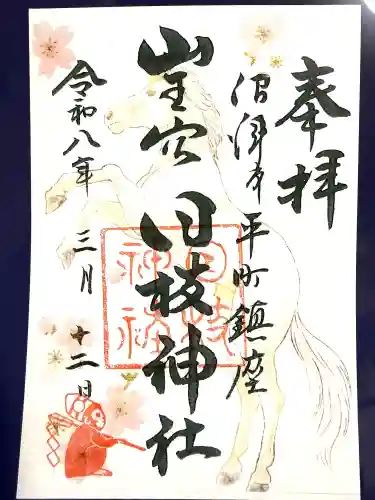 奉拝
沼津市平町鎮座
山王宮
日枝神社
日枝神社
令和八年
三月
十二日